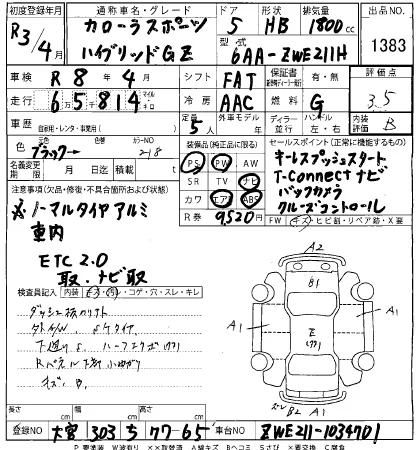 初度登録年月 通称車名・グレード ドア 形状 排気量 出品NO.
R3/4月 カローラスポーツ 5 HB 1800cc
ハイブリッドGZ 型式 6AA-ZWE211H 1383
車検 R8年4月 シフト FAT 保証書 有・無 評価点
走行 65千814 マイル キロ 冷房 AAC 燃料 G 3.5
車歴 自家用・レンタ・事業用( ) 定員 5人 ディーラー 並行 ハンドル 左・右 内装評価 B
色 元色 ブラック 色替 カラーNO. 218
装備品(純正品に限る) セールスポイント(正常に機能するもの)
PS PW AW キーレスプッシュスタート
名義変更期限 月 日迄 積載量 t SR TV ナビ T-Connectナビ
注意事項(欠品・修復・不具合箇所および状態) カワ エアB ABS バックカメラ
R券 9,520円 クルーズコントロール
ノーマルタイヤアルミ FW キズ・ヒビ割・リペア跡・X要
車内
ETC 2.0
取、ナビ取
検査員記入 内装 キズ・汚・コゲ・穴・スレ・キレ
A2
B1
A1 E A1
キズ B2 A1
長さ cm 幅 cm 高さ cm
登録NO. 大宮 303 ち 77-65 車台NO. ZWE211-1034701
P要塗装 W波有り ××取替済 A線キズ Bヘコミ Sさび ×要交換 C腐食